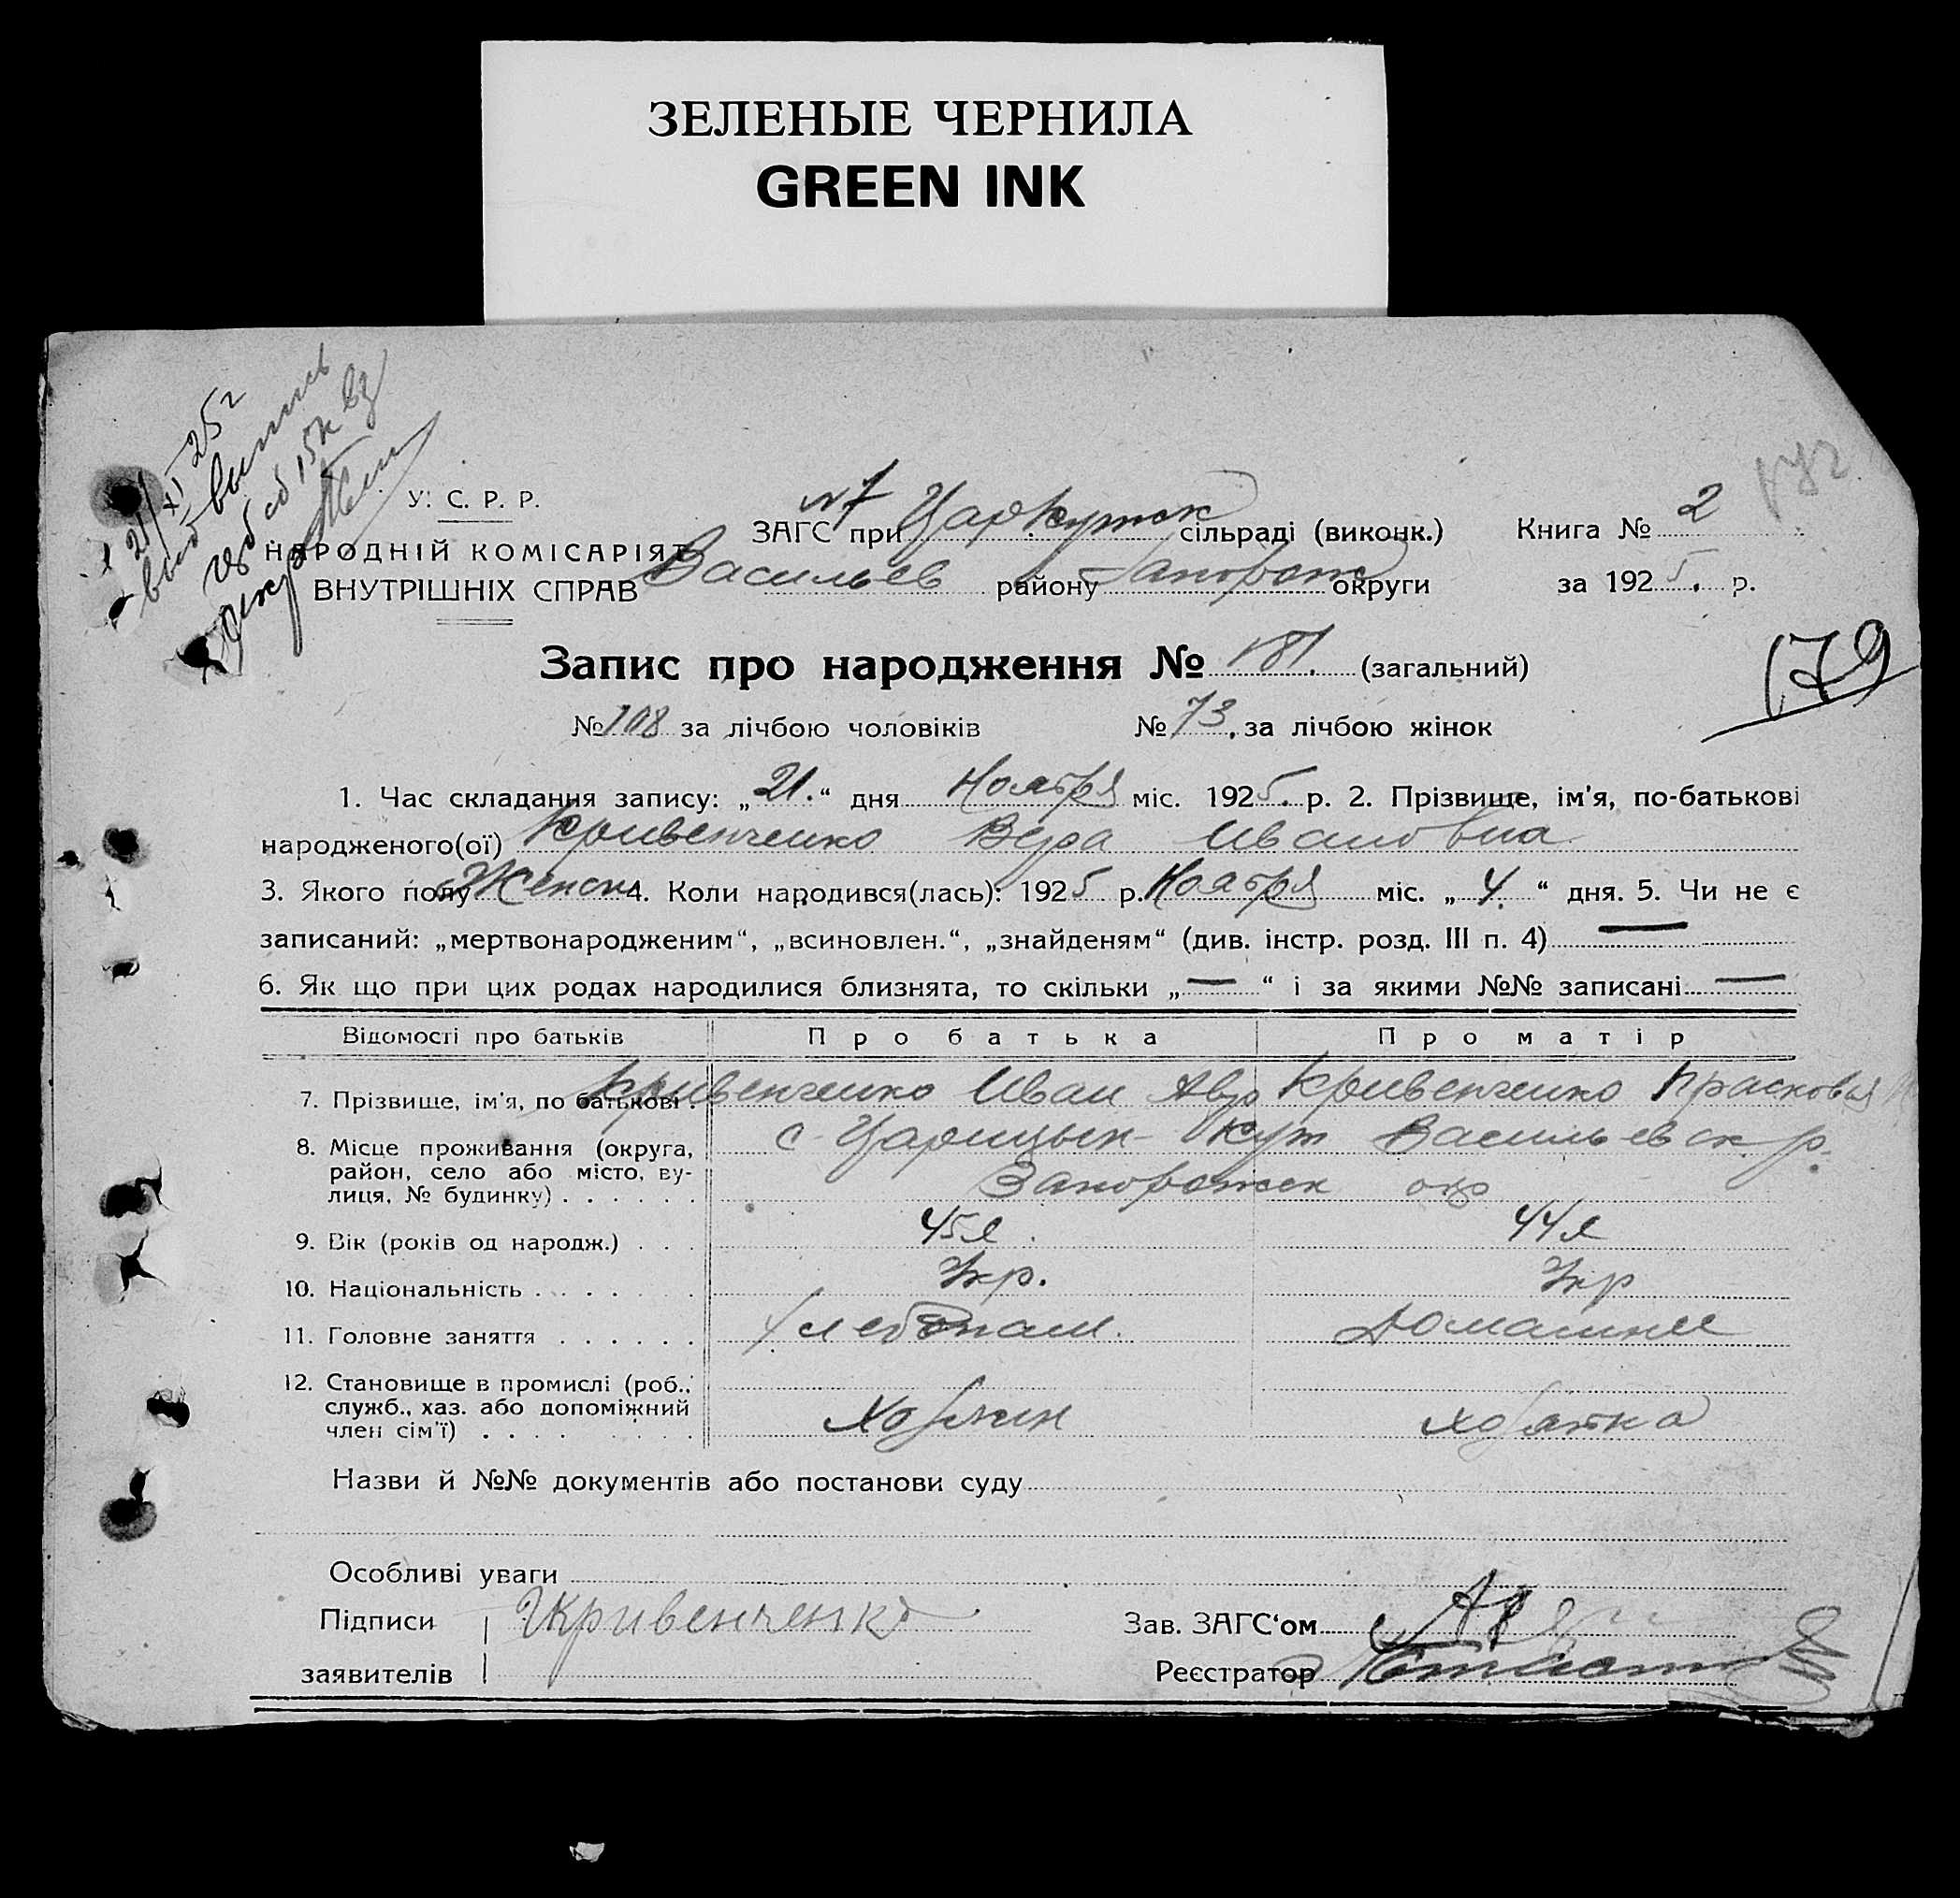 ЗЕЛЕНЫЕ ЧЕРНИЛА
GREEN INK
21/XI 25 г
выпись
У. С. Р. Р.
НАРОДНІЙ КОМІСАРІЯТ
ВНУТРІШНІХ СПРАВ
ЗАГС при Царкутск сільраді (виконк.) Книга № 2
Васильев району Запорож округи за 1925 р.
179
Запис про народження № 181. (загальний)
№ 108 за лічбою чоловіків № 73. за лічбою жінок
1. Час складання запису: „21.“ дня Ноября міс. 1925. р. 2. Прізвище, ім'я, по-батькові
народженого(ої) Кривенченко Вера Ивановна
3. Якого полу Женск 4. Коли народився(лась): 1925 р. Ноября міс. „4.“ дня. 5. Чи не є
записаний: „мертвонародженим“, „всиновлен.“, „знайденям“ (див. інстр. розд. III п. 4) —
6. Як що при цих родах народилися близнята, то скільки „—“ і за якими №№ записані —
Відомості про батьків Про батька Про матір
7. Прізвище, ім'я, по батькові. Кривенченко Иван Кривенченко Прасковья
8. Місце проживання (округа, с. Царицын-Кут Васильевск. р.
район, село або місто, ву-
лиця, № будинку) Запорожск окр
9. Вік (років од народж.) 45 л. 44 л
10. Національність Укр. Укр
11. Головне заняття Хлебопаш. Домашнее
12. Становище в промислі (роб.,
служб., хаз. або допоміжний
член сім'ї) Хозяин хозяйка
Назви й №№ документів або постанови суду
Особливі уваги
Підписи Кривенченко Зав. ЗАГС'ом
заявителів Реєстратор